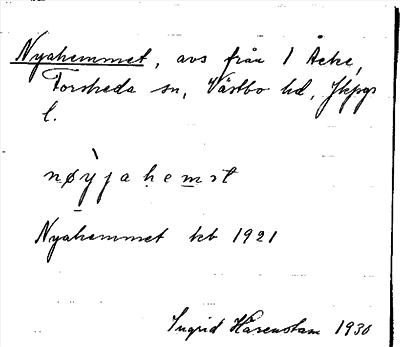 Nyahemmet, avs från 1 Åeke,
Forsheda sn, Västbo hd, Jkpgs
l.
nøỳjahemst
Nyahemmet kb 1921
Ingrid Härenstam 1930